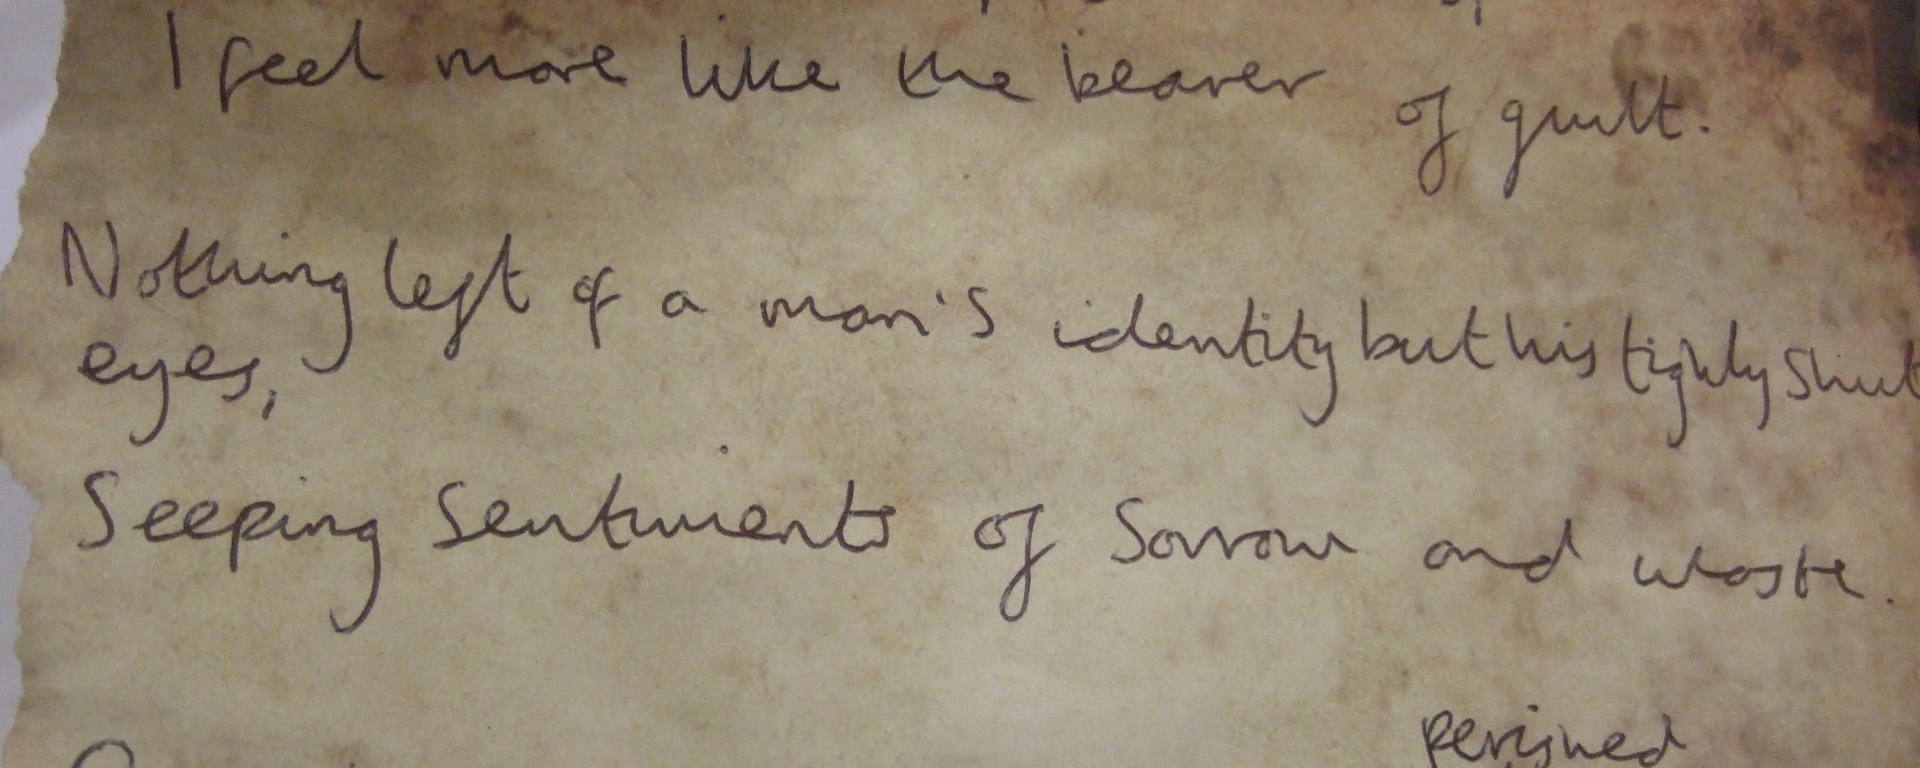 I feel more like the bearer of guilt.
Nothing left of a man's identity but his tightly shut
eyes,
Seeping sentiments of sorrow and waste.
perished